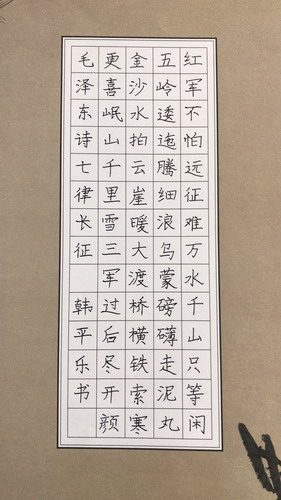 红军不怕远征难万水千山只等闲
五岭逶迤腾细浪乌蒙磅礴走泥丸
金沙水拍云崖暖大渡桥横铁索寒
更喜岷山千里雪三军过后尽开颜
毛泽东诗七律长征 韩平乐书